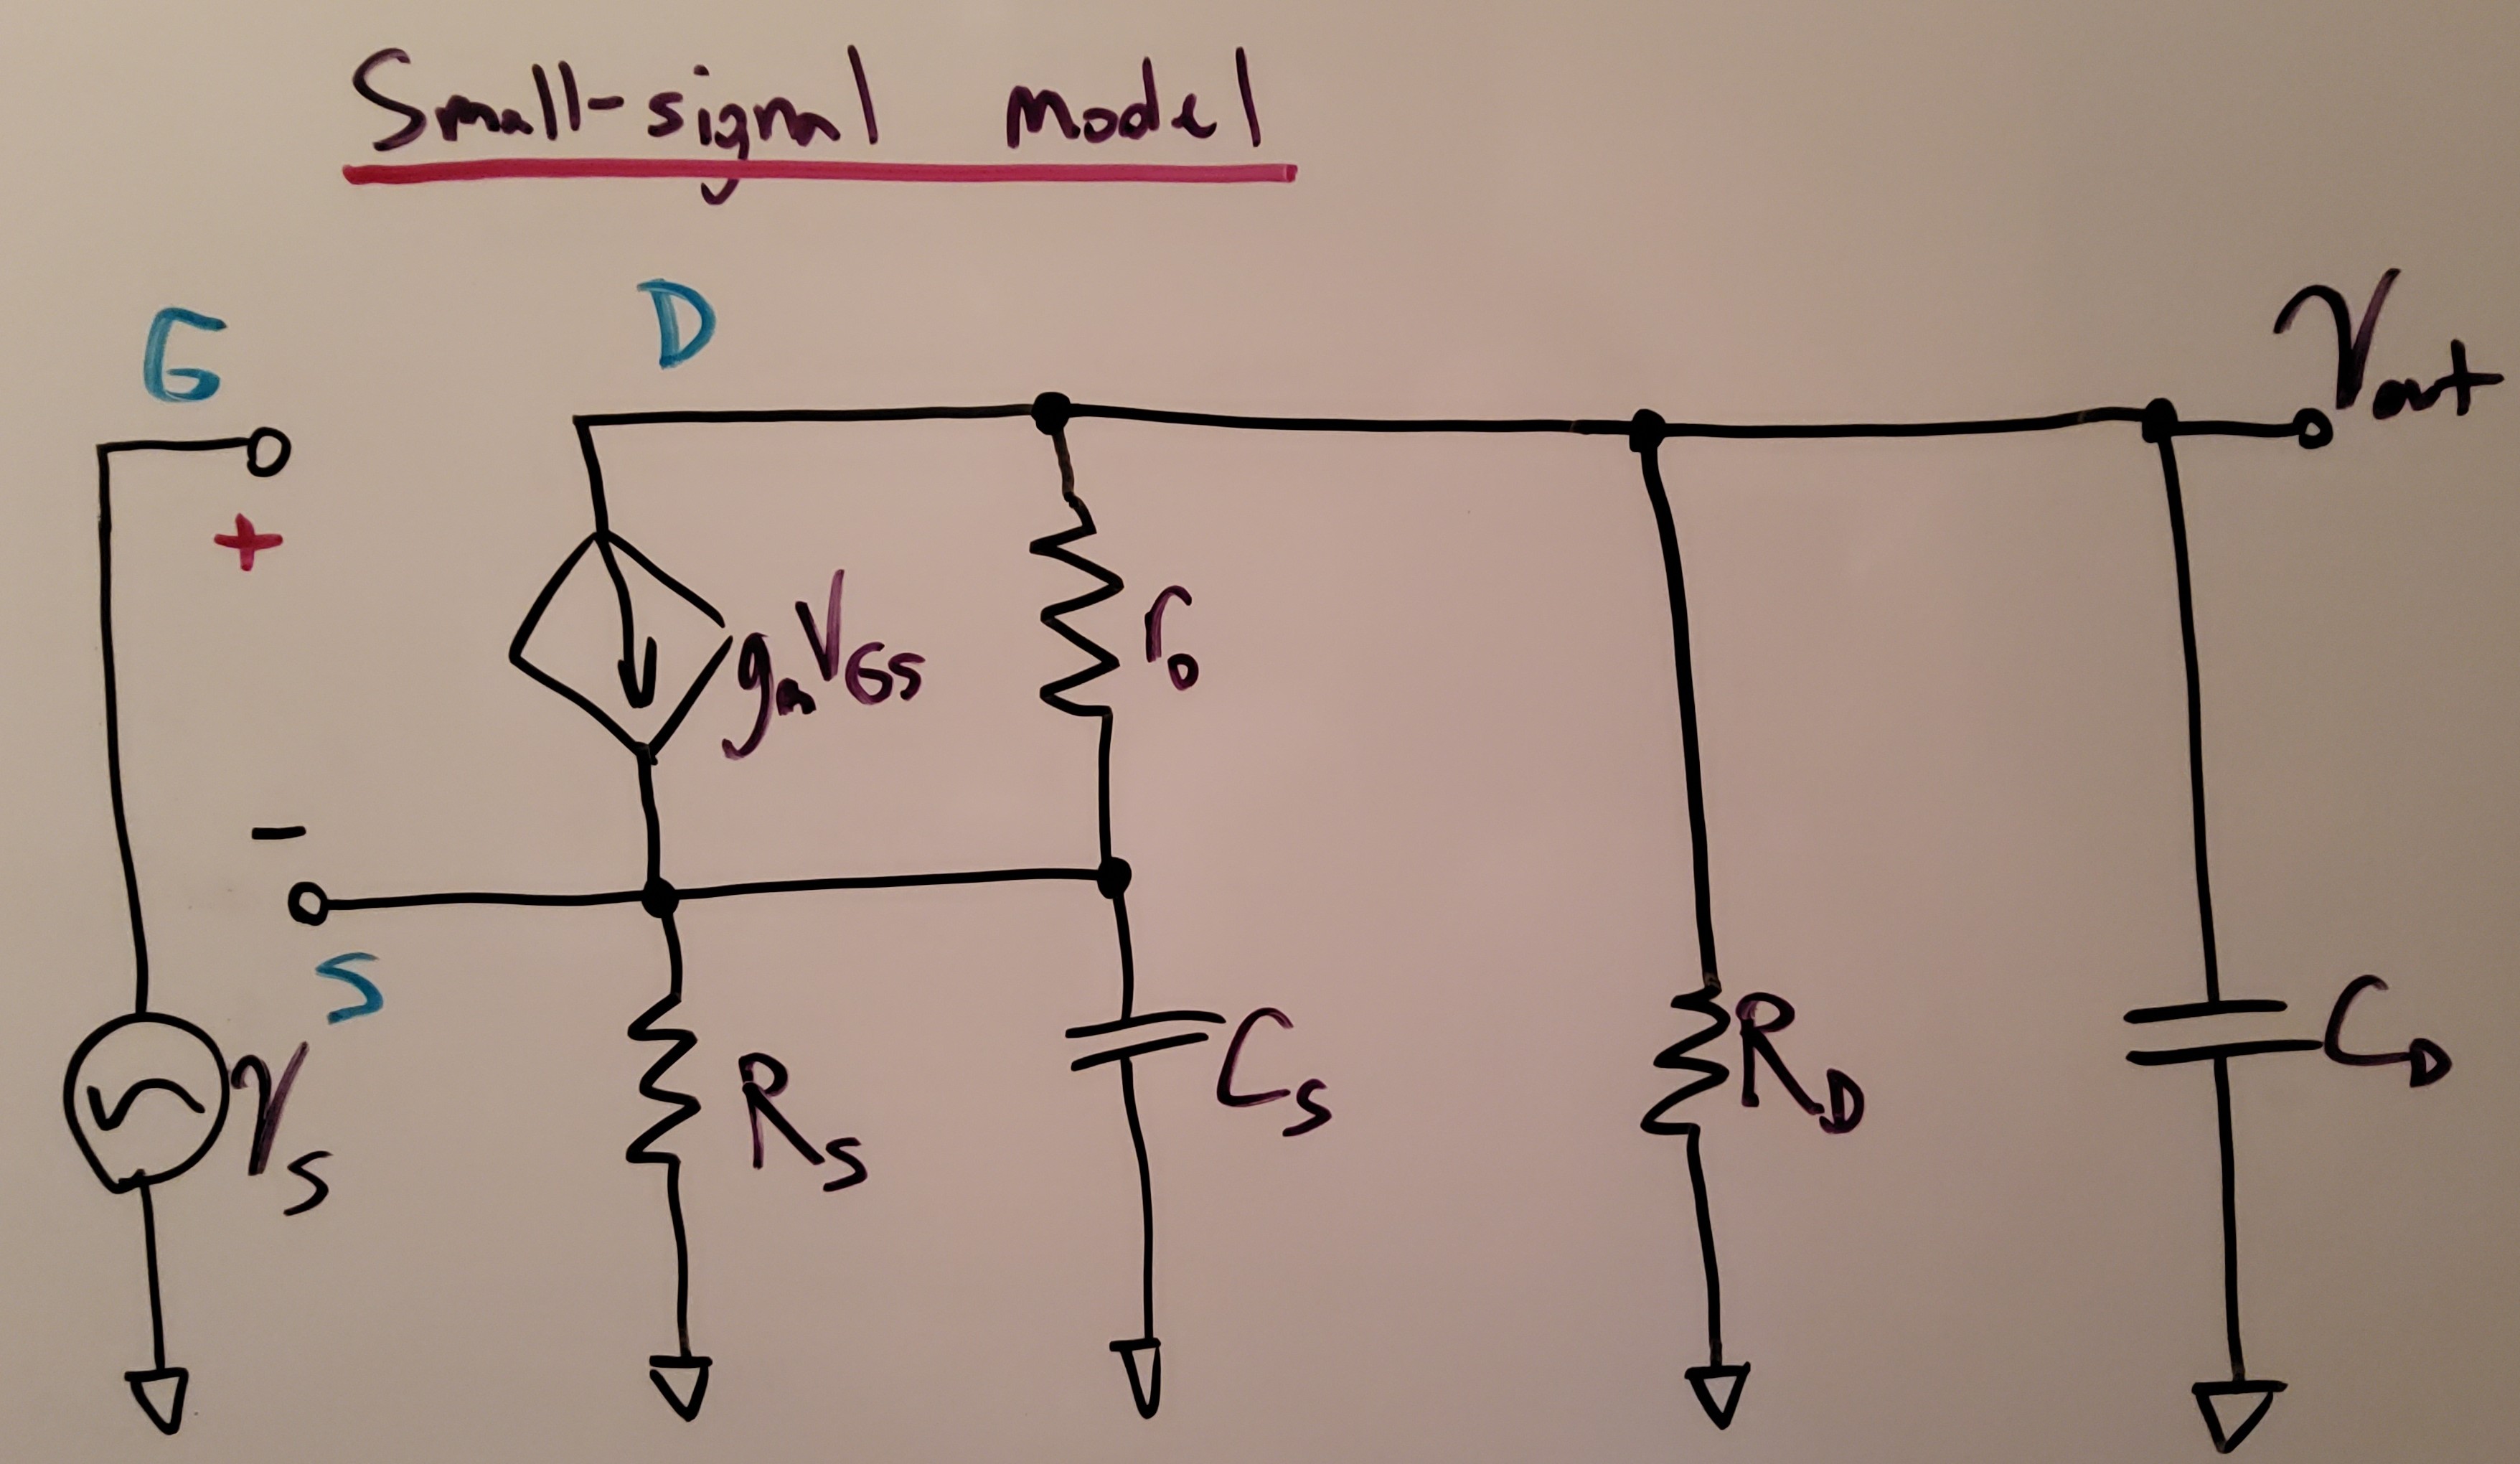 Small-signal Model
G
D
Vout
+
gmVGS
ro
-
S
VS
RS
CS
RD
CD